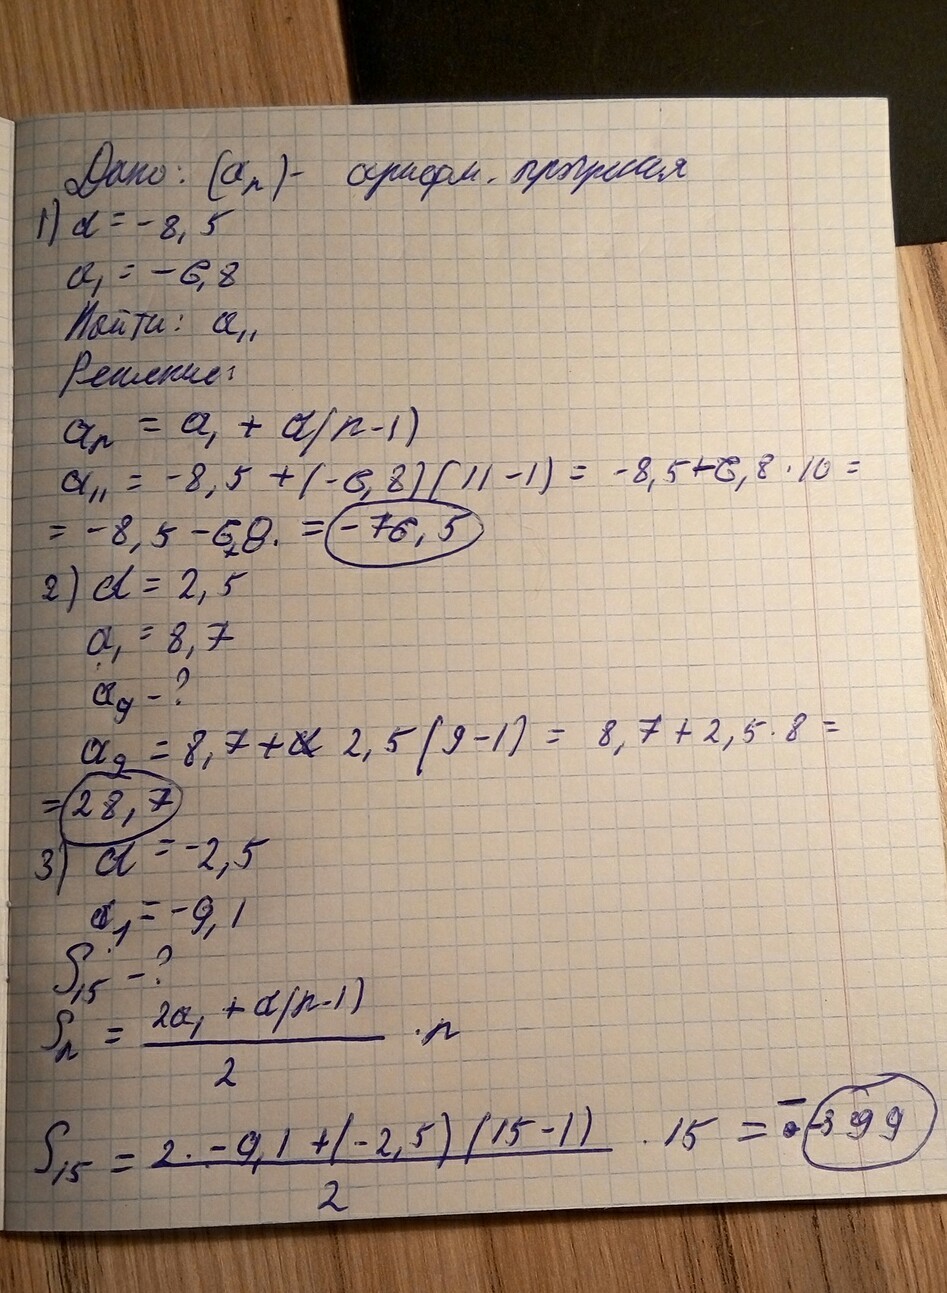 Дано: (aₙ) - арифм. прогрессия
1) d = -8,5
a₁ = -6,8
Найти: a₁₁
Решение:
aₙ = a₁ + d(n-1)
a₁₁ = -8,5 + (-6,8)(11-1) = -8,5+6,8·10 =
= -8,5 -68. = -76,5
2) d = 2,5
a₁ = 8,7
a₉ - ?
a₉ = 8,7 + 2,5(9-1) = 8,7 + 2,5·8 =
= 28,7
3) d = -2,5
a₁ = -9,1
S₁₅ - ?
Sₙ = (2a₁ + d(n-1))/2 · n
S₁₅ = (2·-9,1 + (-2,5)(15-1))/2 · 15 = -399